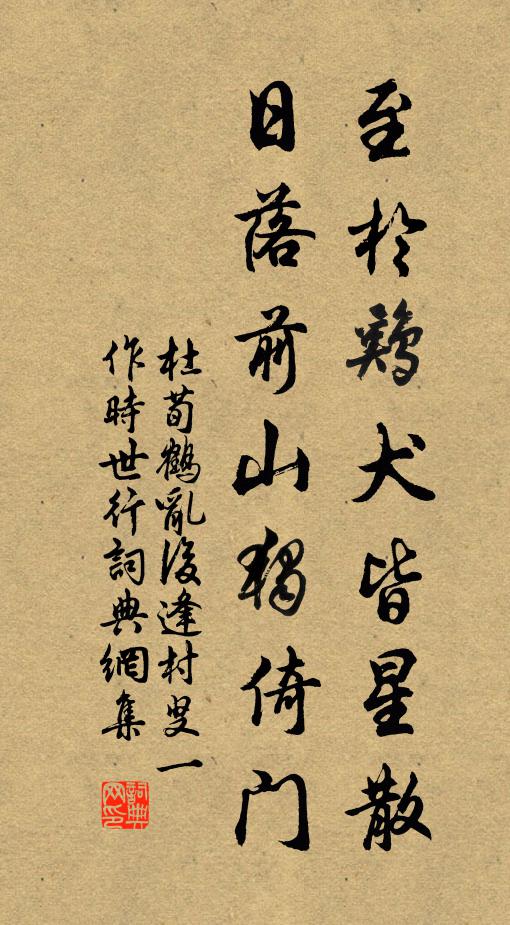 至於鷄犬皆星散
日落前山獨倚門
杜荀鶴亂後逢村叟一
作時世行詞典網集
詞典
网印